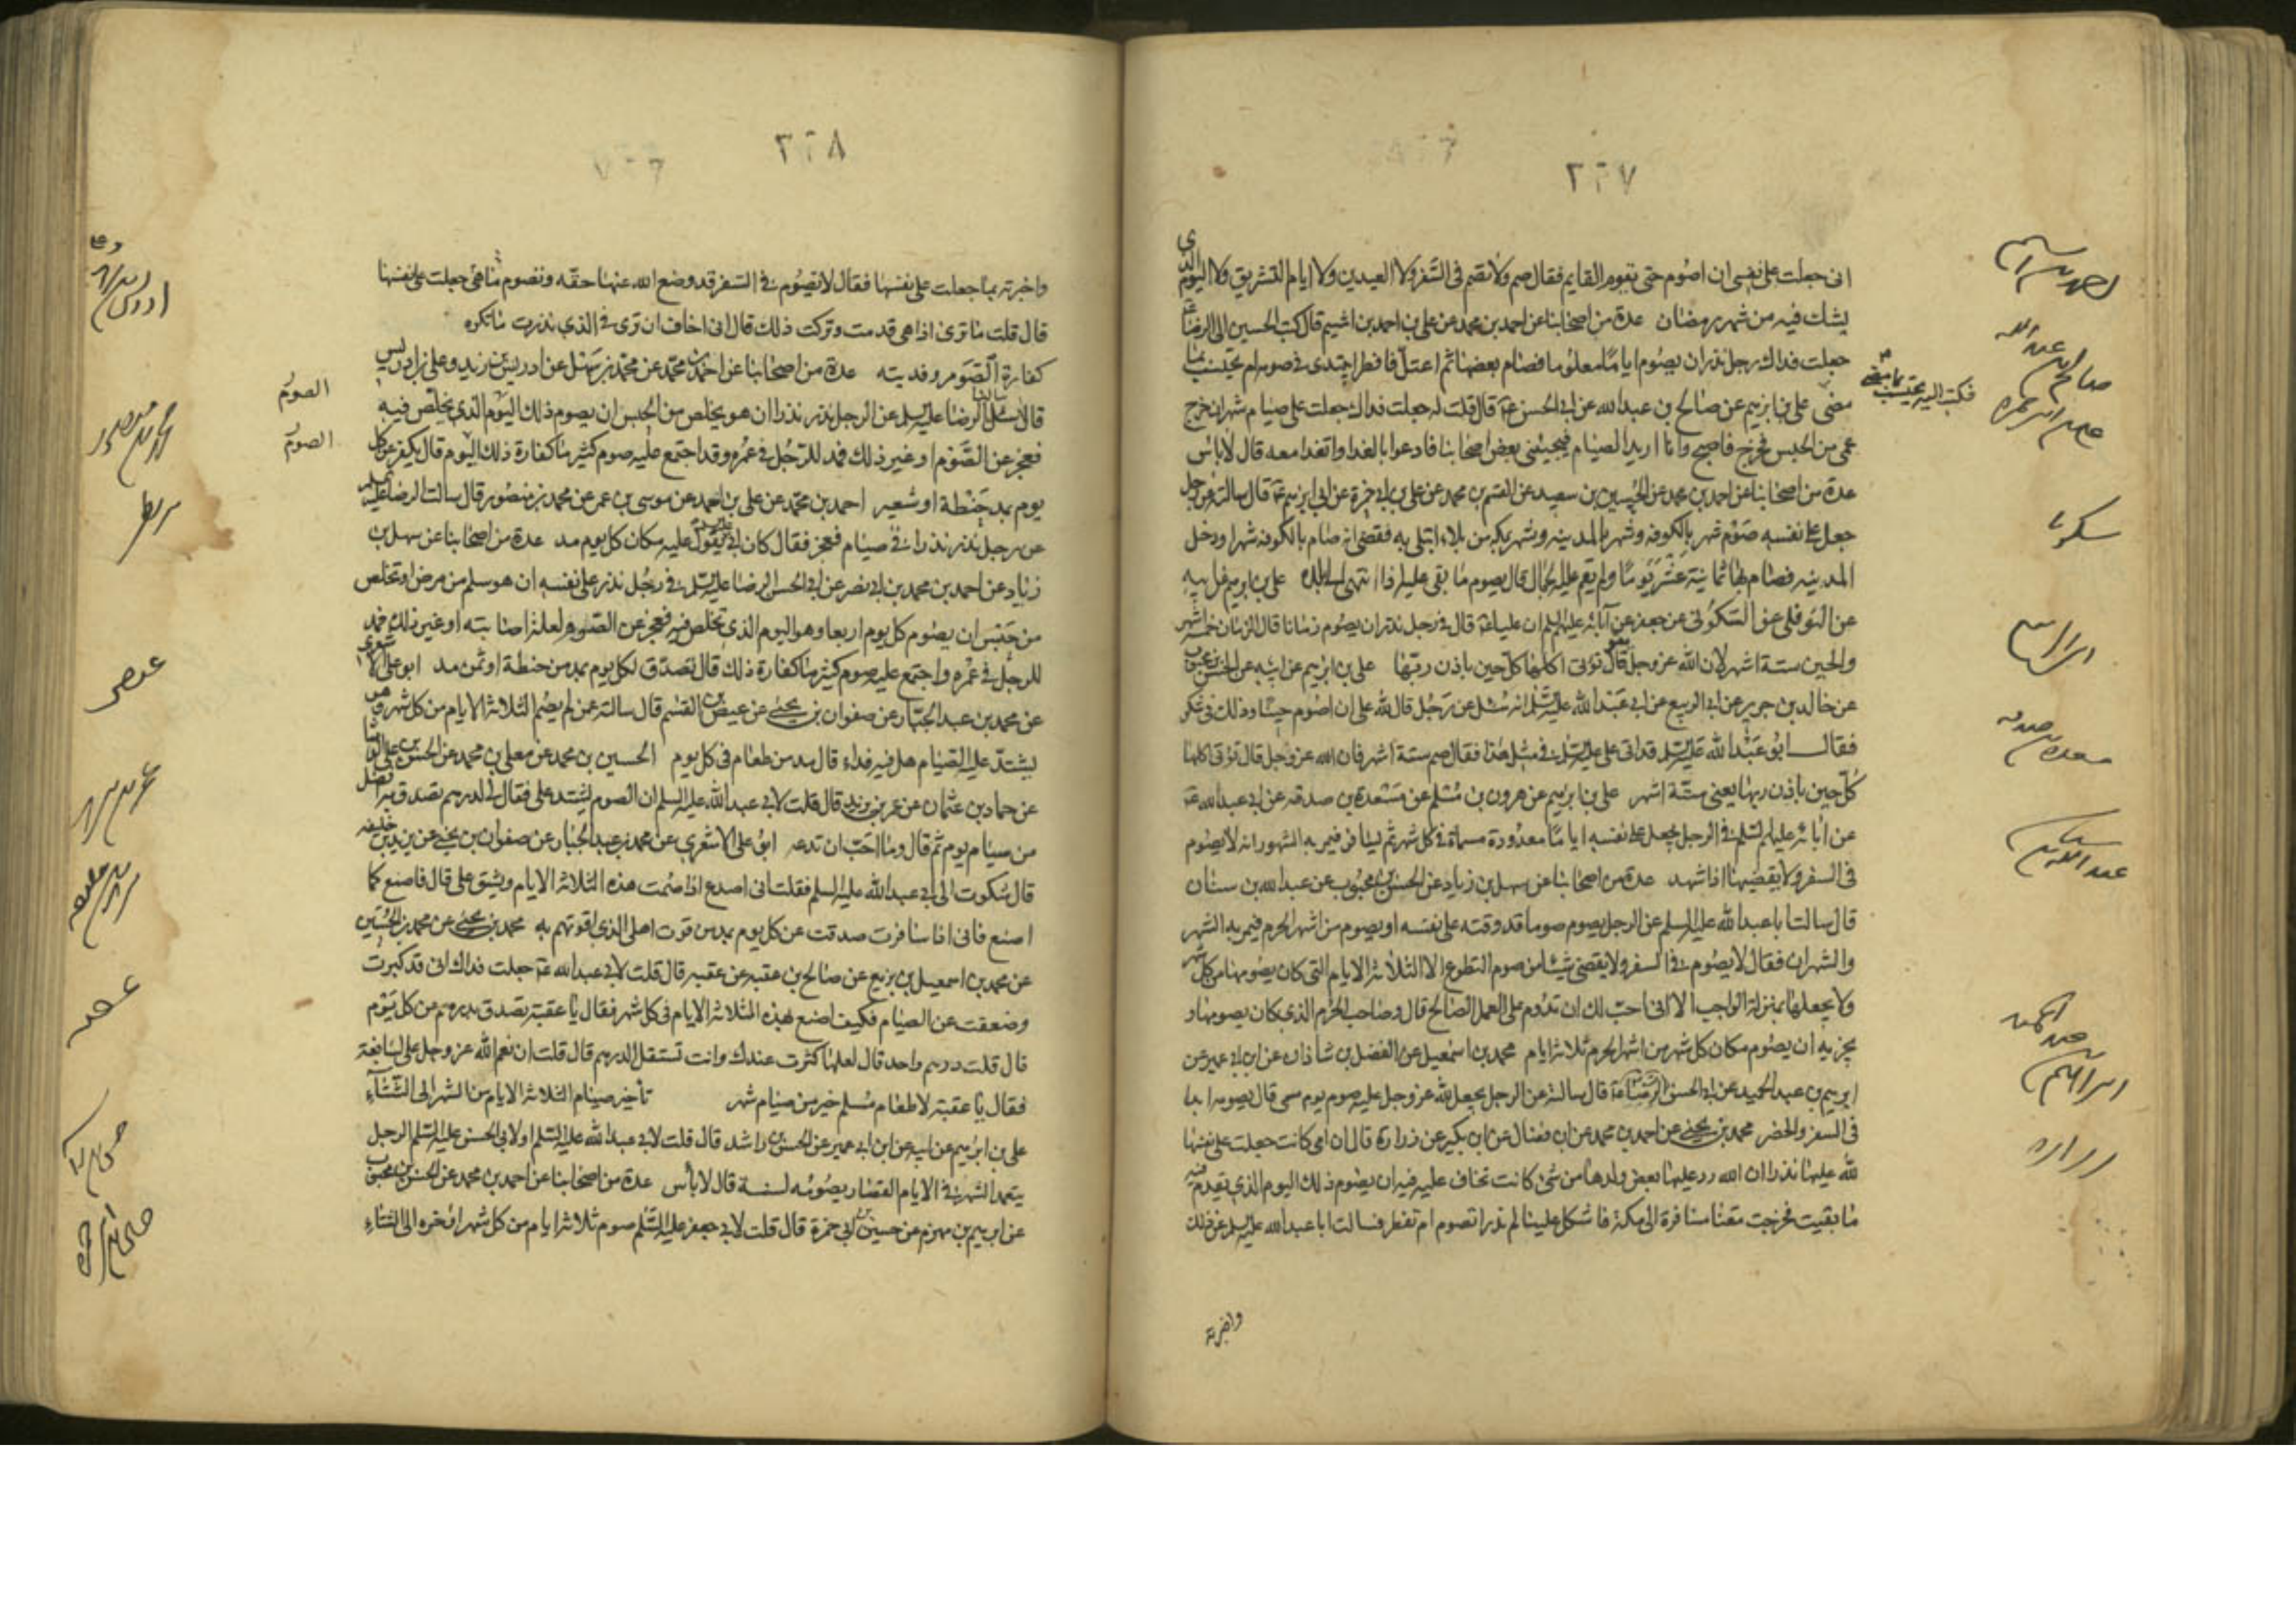 ٢٢٧
انى جعلت على نفسى ان اصوم حتى يقوم القايم فقال صم ولا تصم فى السفر ولا العيدين ولا ايام التشريق ولا اليوم الذى
يشك فيه من شهر رمضان عدة من اصحابنا عن احمد بن محمد عن على بن احمد بن اشيم قال كتب الحسين الى الرضا
جعلت فداك رجل نذر ان يصوم اياما معلوما فصام بعضها ثم اعتل فافطر ايبتدى فى صومه ام يحتسب بما
فكتب اليه يحتسب بما مضى
مضى على بن ابرهيم عن صالح بن عبد الله عن ابى الحسن قال قلت له جعلت فداك جعلت على صيام شهر ان خرج
عمى من الحبس فخرج فاصبح وانا اريد الصيام فيجيئنى بعض اصحابنا فادعوا بالغدا واتغدا معه قال لا باس
عدة من اصحابنا عن احمد بن محمد عن الحسين بن سعيد عن القسم بن محمد عن على بن ابى حمزة عن ابى ابرهيم قال سالته عن رجل
جعل على نفسه صوم شهر بالكوفه وشهر بالمدينه وشهر بمكه من بلاء ابتلى به فقضى انه صام بالكوفه شهرا ودخل
المدينه فصام بها ثمانية عشر يوما ولم يقم عليه الجمال قال يصوم ما بقى عليه اذا انتهى الى بلده على بن ابرهيم عن ابيه
عن النوفلى عن السكونى عن جعفر عن آبائه عليهم السلم ان عليا قال فى رجل نذر ان يصوم زمانا قال الزمان خمسة اشهر
والحين ستة اشهر لان الله عز وجل قال تؤتى اكلها كل حين باذن ربها على بن ابرهيم عن ابيه عن الحسن بن محبوب
عن خالد بن جرير عن ابى الربيع عن ابى عبد الله عليه السلم انه سئل عن رجل قال لله على ان اصوم حينا وذلك فى شكر
فقال ابو عبد الله عليه السلم قد اتى على عليه السلم فى مثل هذا فقال صم ستة اشهر فان الله عز وجل قال تؤتى اكلها
كل حين باذن ربها يعنى ستة اشهر على بن ابرهيم عن هرون بن مسلم عن مسعدة بن صدقه عن ابى عبد الله
عن ابائه عليهم السلم فى الرجل يجعل على نفسه اياما معدودة مسماة فى كل شهر ثم يسافر فيمر به الشهور انه لا يصوم
فى السفر ولا يقضيها اذا شهد عدة من اصحابنا عن سهل بن زياد عن الحسن بن محبوب عن عبد الله بن سنان
قال سالت ابا عبد الله عليه السلم عن الرجل يصوم صوما قد وقته على نفسه او يصوم من اشهر الحرم فيمر به الشهر
والشهران فقال لا يصوم فى السفر ولا يقضى شيئا من صوم التطوع الا الثلاثة الايام التى كان يصومها من كل شهر
ولا يجعلها بمنزلة الواجب الا انى احب لك ان تدوم على العمل الصالح قال وصاحب الحرم الذى كان يصومها و
يجزيه ان يصوم مكان كل شهر من اشهر الحرم ثلاثة ايام محمد بن اسمعيل عن الفضل بن شاذان عن ابن ابى عمير عن
ابرهيم بن عبد الحميد عن ابى الحسن الرضا قال سالته عن الرجل يجعل لله عز وجل عليه صوم يوم مسمى قال يصومه ابدا
فى السفر والحضر محمد بن يحيى عن احمد بن محمد عن ابن فضال عن ابن بكير عن زرارة قال ان امى كانت جعلت على نفسها
لله عليها نذرا ان الله رد عليها بعض ولدها من شى كانت تخاف عليه فيه ان يصوم ذلك اليوم الذى تقدم فيه
ما بقيت فخرجت معنا مسافرة الى مكة فاشكل علينا لم ندر اتصوم ام تفطر فسالت ابا عبد الله عليه السلم عن ذلك
واخبرته
صالح بن عبد الله
سكونى
مسعدة بن صدقه
عبد الله بن سنان
ابراهيم بن عبد الحميد
زراره
٢٢٨
واخبرته بما جعلت على نفسها فقال لا تصوم فى السفر قد وضع الله عنها حقه وتصوم ما هى جعلت على نفسها
قال قلت ما ترى اذا هى قدمت وتركت ذلك قال انى اخاف ان ترى فى الذى نذرت ما تكره
كفارة الصوم وفديته عدة من اصحابنا عن احمد بن محمد عن محمد بن سهل عن ادريس بن زيد وعلى بن ادريس
قالا سالنا الرضا عليه السلم عن الرجل نذر نذرا ان هو يخلص من الحبس ان يصوم ذلك اليوم الذى يخلص فيه
فعجز عن الصوم او غير ذلك فمد للرجل فى عمره وقد اجتمع عليه صوم كثير ما كفارة ذلك اليوم قال يكفر عن كل
يوم بمد حنطة او شعير احمد بن محمد عن على بن احمد عن موسى بن عمر عن محمد بن منصور قال سالت الرضا عليه السلم
عن رجل نذر نذرا فى صيام فعجز فقال كان ابى يقول عليه مكان كل يوم مد عدة من اصحابنا عن سهل بن
زياد عن احمد بن محمد بن ابى نصر عن ابى الحسن الرضا عليه السلم فى رجل نذر على نفسه ان هو سلم من مرض او تخلص
من حبس ان يصوم كل يوم اربعا وهو اليوم الذى تخلص فيه فعجز عن الصوم لعلة اصابته او غير ذلك فمد
للرجل فى عمره واجتمع عليه صوم كثير ما كفارة ذلك قال تصدق لكل يوم بمد من حنطة او ثمن مد ابو على الاشعرى
عن محمد بن عبد الجبار عن صفوان بن يحيى عن عيص بن القسم قال سالته عمن لم يصم الثلاثة الايام من كل شهر وهو
يشتد عليه الصيام هل فيه فداء قال مد من طعام فى كل يوم الحسين بن محمد عن معلى بن محمد عن الحسن بن على الوشا
عن حماد بن عثمان عن عمر بن يزيد قال قلت لابى عبد الله عليه السلم ان الصوم يشتد على فقال لى لدرهم تصدق به افضل
من صيام يوم ثم قال وما احب ان تدعه ابو على الاشعرى عن محمد بن عبد الجبار عن صفوان بن يحيى عن يزيد بن خليفه
قال شكوت الى ابى عبد الله عليه السلم فقلت انى اصدع اذا صمت هذه الثلاثة الايام ويشق على قال فاصنع كما
اصنع فانى اذا سافرت صدقت عن كل يوم بمد من قوت اهلى الذى اقوتهم به محمد بن يحيى عن محمد بن الحسين
عن محمد بن اسمعيل بن بزيع عن صالح بن عقبه عن عقبه قال قلت لابى عبد الله جعلت فداك انى قد كبرت
وضعفت عن الصيام فكيف اصنع بهذه الثلاثة الايام فى كل شهر فقال يا عقبة تصدق بدرهم من كل يوم
قال قلت درهم واحد قال لعلها كثرت عندك وانت تستقل الدرهم قال قلت ان نعم الله عز وجل على لسابغة
فقال يا عقبة لاطعام مسلم خير من صيام شهر تأخير صيام الثلاثة الايام من الشهر الى الشتاء
على بن ابرهيم عن ابيه عن ابن ابى عمير عن الحسن بن راشد قال قلت لابى عبد الله عليه السلم او لابى الحسن عليه السلم الرجل
يتعمد الشهر فى الايام القصار يصومه لسنة قال لا بأس عدة من اصحابنا عن احمد بن محمد عن الحسن بن محبوب
عن ابرهيم بن مهزم عن حسين بن ابى حمزة قال قلت لابى جعفر عليه السلم صوم ثلاثة ايام من كل شهر اؤخره الى الشتاء
الصوم
الصوم